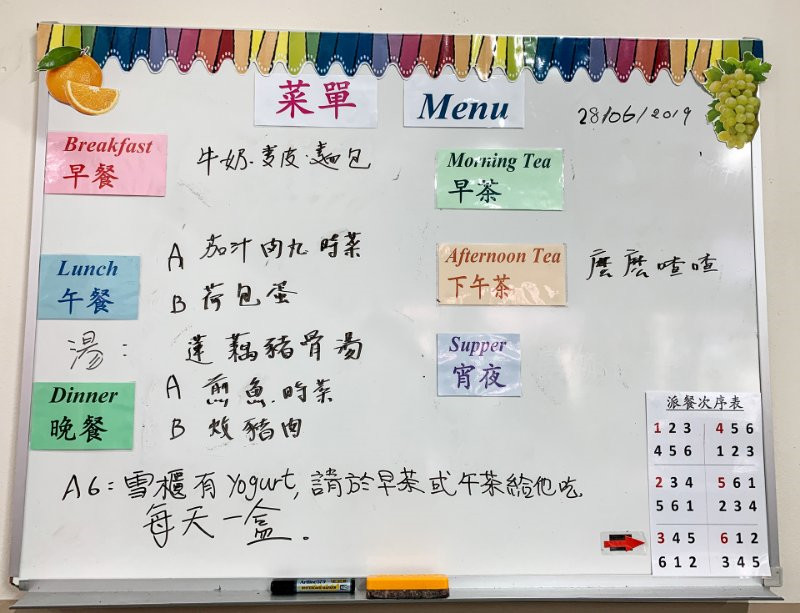 菜單 Menu
28/06/2019
Breakfast
早餐
牛奶.麥皮.麵包
Morning Tea
早茶
Lunch
午餐
A 茄汁肉丸 時菜
B 荷包蛋
Afternoon Tea
下午茶
麼麼喳喳
湯: 蓮藕豬骨湯
Supper
宵夜
Dinner
晚餐
A 煎魚.時菜
B 炆豬肉
A6:雪櫃有Yogurt,請於早茶或午茶給他吃.
每天一盒.
派餐次序表
1 2 3 4 5 6
4 5 6 1 2 3
2 3 4 5 6 1
5 6 1 2 3 4
3 4 5 6 1 2
6 1 2 3 4 5